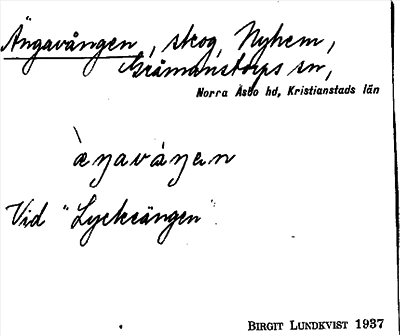 Ängavången, skog, Nyhem,
Gråmanstorps sn,
Norra Åsbo hd, Kristianstads län
æŋavåŋen
Vid "Lyckeängen".
BIRGIT LUNDKVIST 1937